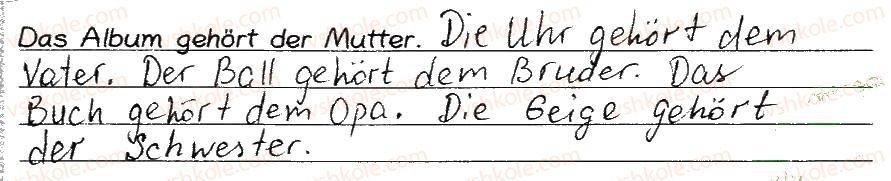 Das Album gehört der Mutter. Die Uhr gehört dem
Vater. Der Ball gehört dem Bruder. Das
Buch gehört dem Opa. Die Geige gehört
der Schwester.